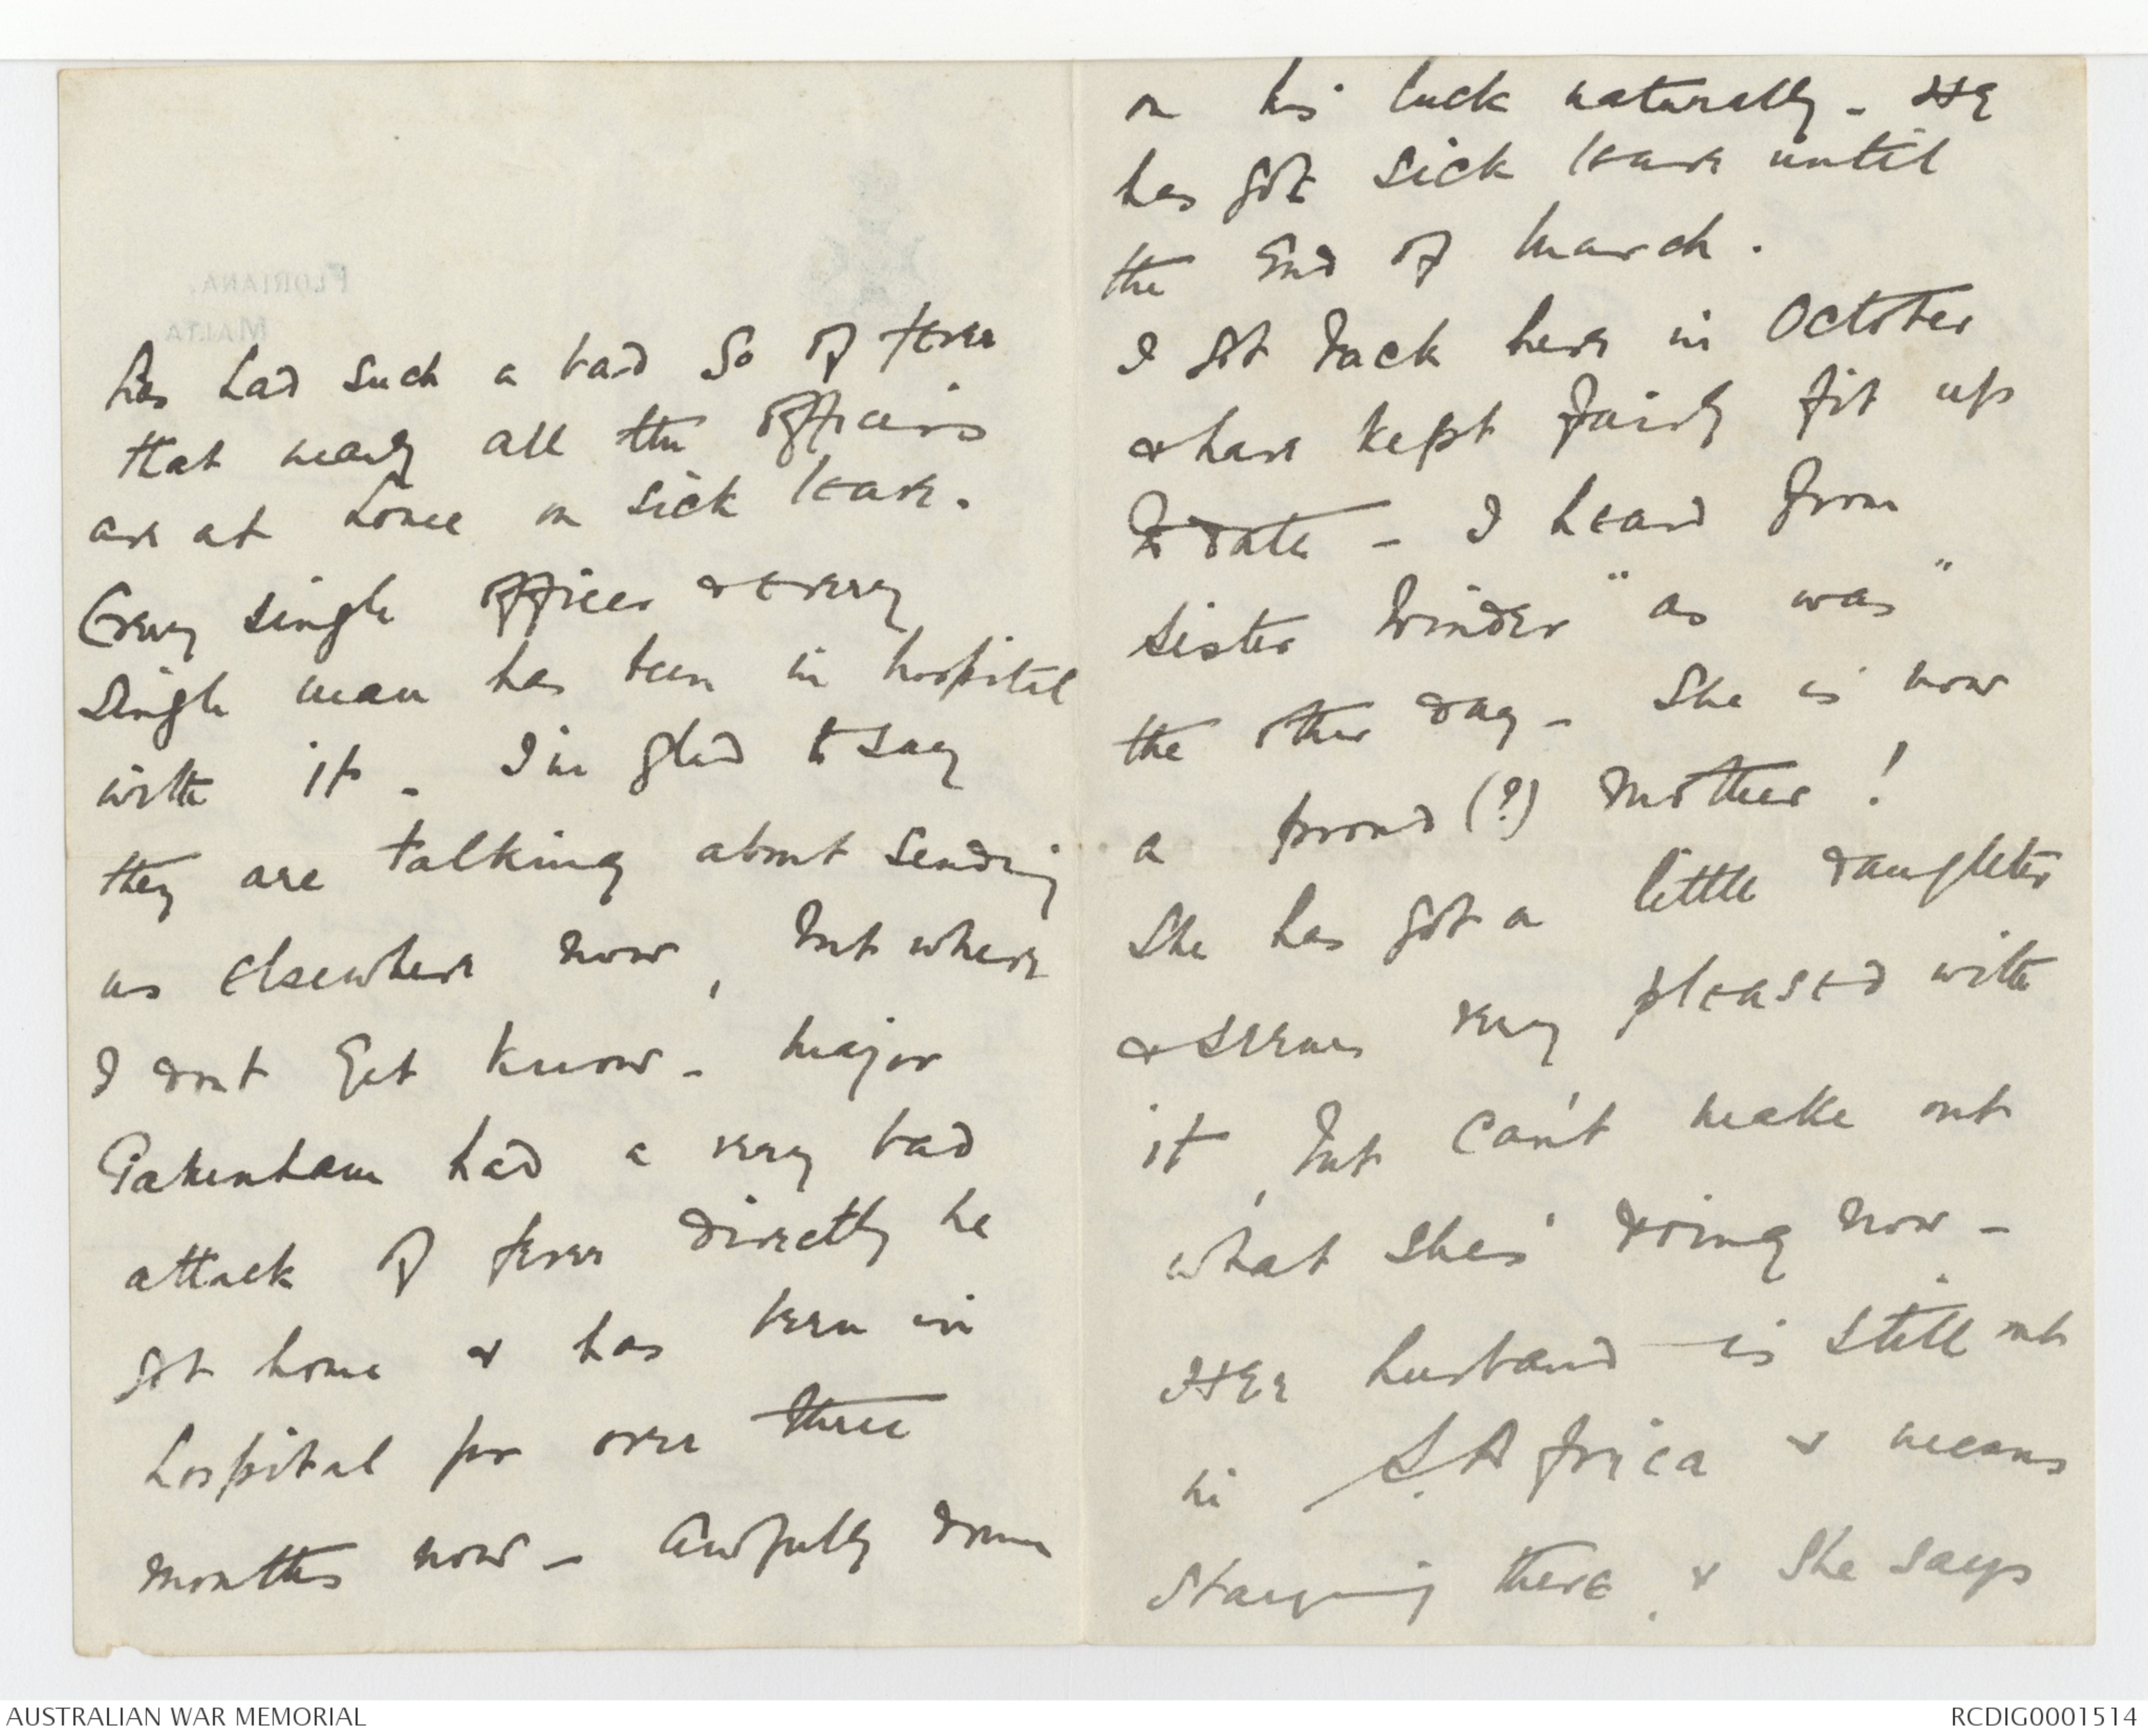 has had such a bad go of fever
that nearly all the officers
are at home on sick leave.
Every single officer & every
single man has been in hospital
with it - I'm glad to say
they are talking about sending
us elsewhere now, but where
I dont yet know - Major
Pakenham had a very bad
attack of fever directly he
got home & has been in
hospital for over three
months now - Awfully down
on his luck naturally - He
has got sick leave until
the end of March.
I got back here in October
& have kept fairly fit up
to date - I heard from
Sister "as was"
the other day - She is now
a proud (?) mother!
She has got a little daughter
& seems very pleased with
it, but can't make out
what she's doing now -
Her husband is still out
in S. Africa & means
staying there, & she says
FLORIANA,
MALTA
AUSTRALIAN WAR MEMORIAL
RCDIG0001514